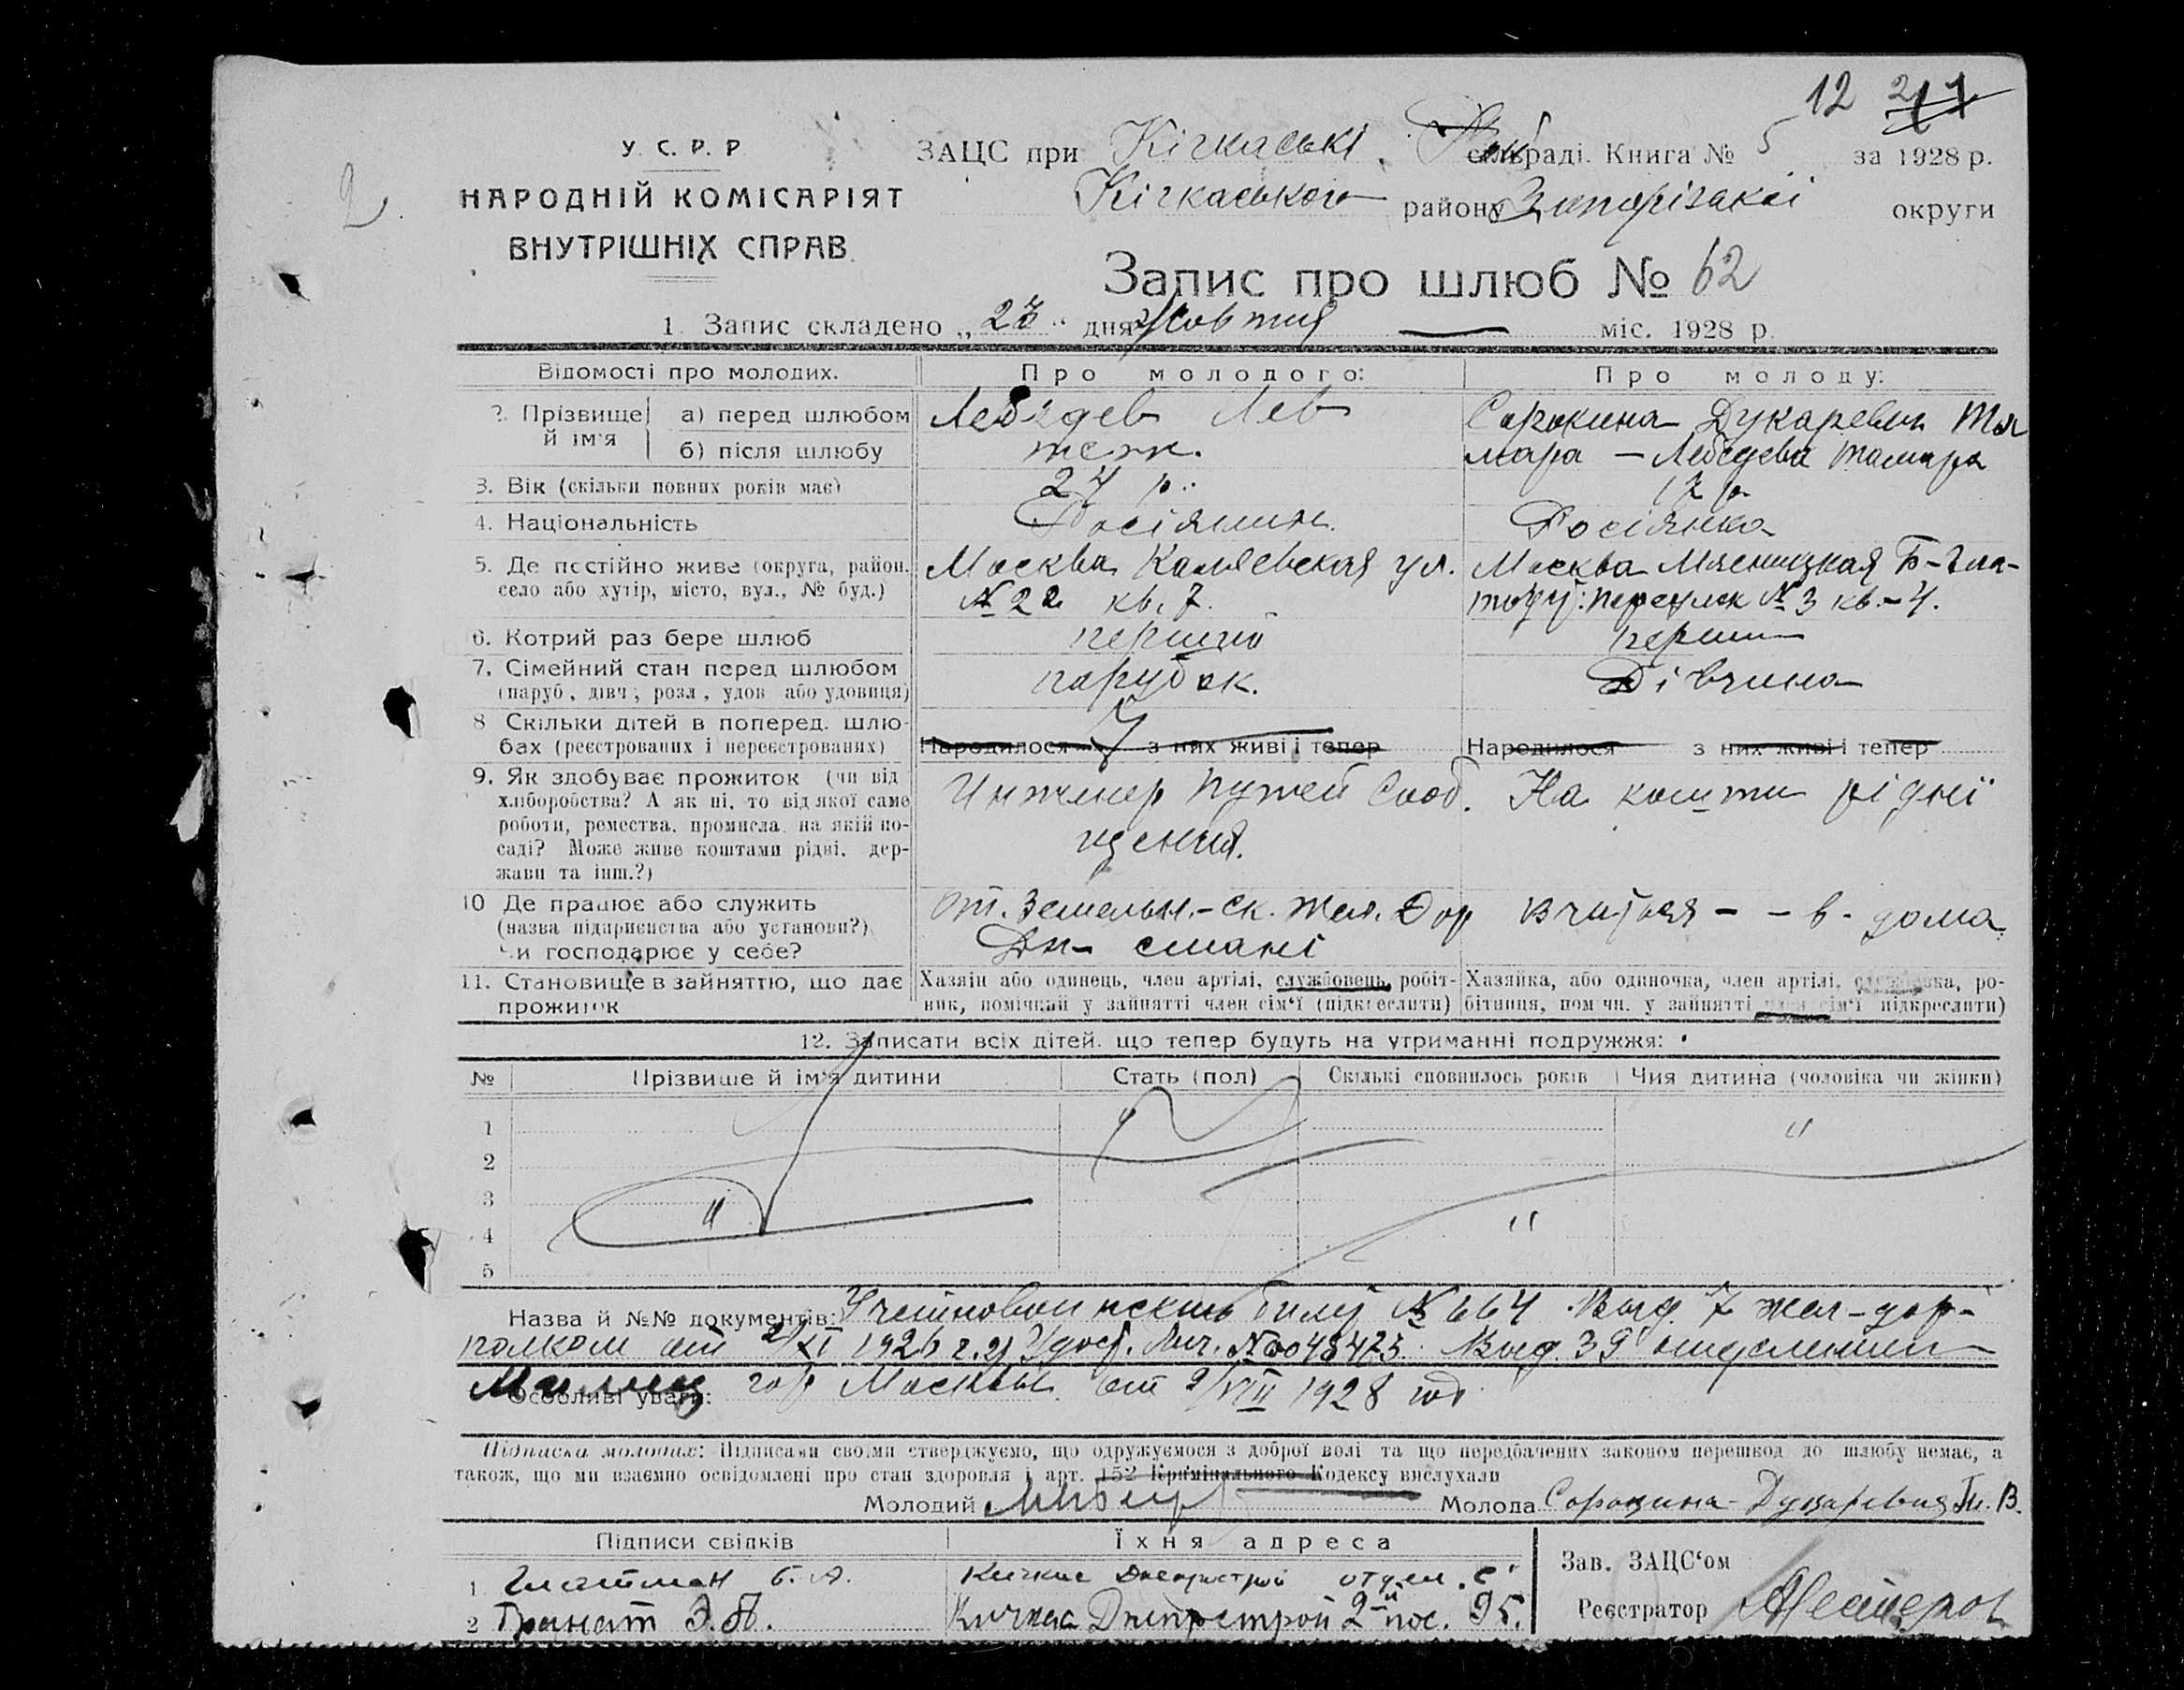 12
2
У. С. Р. Р.
НАРОДНІЙ КОМІСАРІЯТ
ВНУТРІШНІХ СПРАВ.
ЗАЦС при Кічкаські сельраді. Книга № 5 за 1928 р.
Кічкаського району Запорізької округи
Запис про шлюб № 62
1. Запис складено „ 23 “ дня Жовтня — міс. 1928 р.
Відомості про молодих. Про молодого: Про молоду:
2. Прізвище й ім'я а) перед шлюбом Лебедев Лев Сорокина Дукаревич Та
б) після шлюбу теж. мара — Лебедева Тамара
3. Вік (скільки повних років має) 27 р. 17 р.
4. Національність Росіянин. Росіянка
5. Де постійно живе (округа, район, Москва Каляевская ул. Москва Мясницкая Б-Зла-
село або хутір, місто, вул., № буд.) № 22 кв. 7. переулок № 3 кв. - 4.
6. Котрий раз бере шлюб перший перший
7. Сімейний стан перед шлюбом парубок. Дівчина
(паруб., дівч., розл., удов. або удовиця)
8. Скільки дітей в поперед. шлю-
бах (реєстрованих і нереєстрованих) Народилося з них живі і тепер Народилося з них живі і тепер
9. Як здобуває прожиток (чи від Инженер Путей Сооб. На кошти рідні
хліборобства? А як ні, то від якої саме щения.
роботи, ремества, промисла, на якій по-
саді? Може живе коштами рідні, дер-
жави та інш.?)
10. Де працює або служить От. Земельн.-ск. Жел. Дор - в - дома
(назва підприємства або установи?)
Чи господарює у себе?
11. Становище в зайняттю, що дає Хазяїн або одинець, член артілі, службовець, робіт- Хазяйка, або одиночка, член артілі, службовка, ро-
прожиток ник, помічний у зайнятті член сім'ї (підкреслити) бітниця, помічн. у зайнятті член сім'ї підкреслити)
12. Записати всіх дітей, що тепер будуть на утриманні подружжя:
№ Прізвище й ім'я дитини Стать (пол) Скількі сповнилось років Чия дитина (чоловіка чи жінки)
1 "
2
3 "
4 "
5
Назва й №№ документів: № 664 Выд. 7 жел-дор-
полком от 2/XI 1926 г. 2) Удост. Лич. № 048473 Выд. 39 отделением
Особливі уваги: Милиц гор Москвы от 2/VIII 1928 год
Підписка молодих: Підписами своїми стверджуємо, що одружуємося з доброї волі та що передбачених законом перешкод до шлюбу немає, а
також, що ми взаємно освідомлені про стан здоровля і арт. 152 Кримінального Кодексу вислухали
Молодий Молода Сорокина-Дукаревич Т. В.
Підписи свідків Їхня адреса
1 Б. А. Кичкас Днепрострой отдел.
2 Гранат Э. Кичкас Днепрострой 2й пос. 95.
Зав. ЗАЦС'ом
Реєстратор